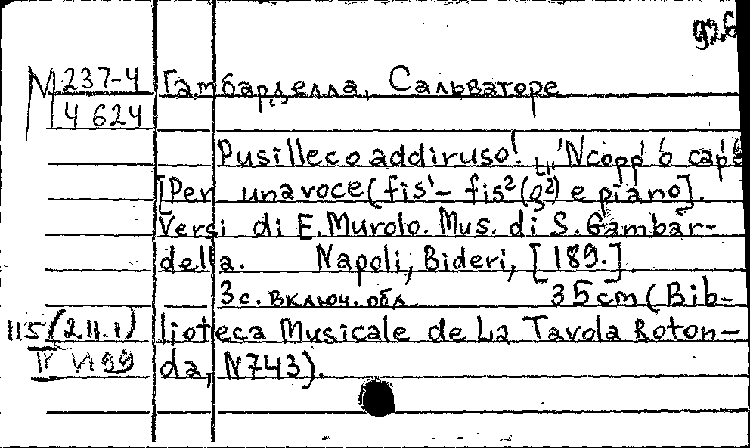 М 237-4 Гамбарделла, Сальваторе
4 624
Pusilleco addiruso! "'Ncopp' o cape
[Per una voce (fis¹ – fis² (g²) e piano].
Versi di E. Murolo. Mus. di S. Gambar-
della. Napoli, Bideri, [189.]
3 с. включ. обл. 35 cm (Bib-
115 (2.11.1) lioteca Musicale de La Tavola Roton-
IV VI 99 da, N743).